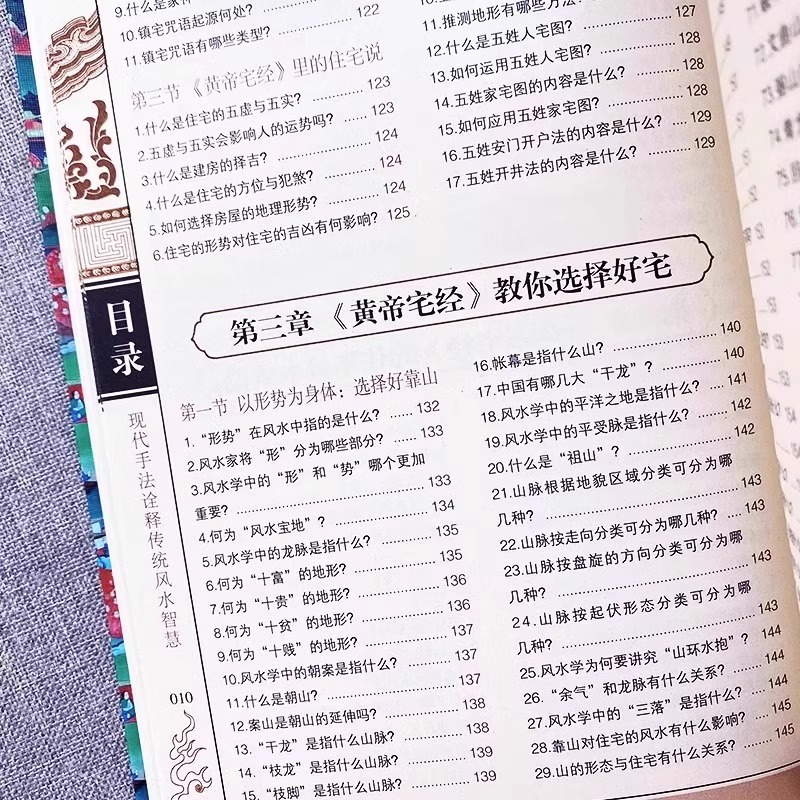 10.镇宅咒语起源何处? 122
11.镇宅咒语有哪些类型?
第三节 《黄帝宅经》里的住宅说
1.什么是住宅的五虚与五实? ………… 123
2.五虚与五实会影响人的运势吗? …… 123
3.什么是建房的择吉? ………… 124
4.什么是住宅的方位与犯煞? ………… 124
5.如何选择房屋的地理形势? ………… 124
6.住宅的形势对住宅的吉凶有何影响? 125
11.推测地形有哪些方法?
12.什么是五姓人宅图? ………… 127
13.如何运用五姓人宅图? ………… 128
14.五姓家宅图的内容是什么? ………… 128
15.如何应用五姓家宅图? ………… 128
16.五姓安门开户法的内容是什么? …… 129
17.五姓开井法的内容是什么? ………… 129
第三章 《黄帝宅经》教你选择好宅
第一节 以形势为身体:选择好靠山
1.“形势”在风水中指的是什么? …… 132
2.风水家将“形”分为哪些部分? …… 133
3.风水学中的“形”和“势”哪个更加
重要? ………… 133
4.何为“风水宝地”? ………… 134
5.风水学中的龙脉是指什么? ………… 135
6.何为“十富”的地形? ………… 135
7.何为“十贵”的地形? ………… 136
8.何为“十贫”的地形? ………… 136
9.何为“十贱”的地形? ………… 137
10.风水学中的朝案是指什么? ………… 137
11.什么是朝山? ………… 137
12.案山是朝山的延伸吗? ………… 138
13.“干龙”是指什么山脉? ………… 138
14.“枝龙”是指什么山脉? ………… 139
15.“枝脚”是指什么山脉? ………… 139
16.帐幕是指什么山? ………… 140
17.中国有哪几大“干龙”? ………… 140
18.风水学中的平洋之地是指什么? …… 141
19.风水学中的平受脉是指什么? ……… 141
20.什么是“祖山”? ………… 142
21.山脉根据地貌区域分类可分为哪
几种? ………… 143
22.山脉按走向分类可分为哪几种? … 143
23.山脉按盘旋的方向分类可分为哪
几种? ………… 143
24.山脉按起伏形态分类可分为哪
几种? ………… 143
25.风水学为何要讲究“山环水抱”? 144
26.“余气”和龙脉有什么关系? …… 144
27.风水学中的“三落”是指什么? … 144
28.靠山对住宅的风水有什么影响? … 145
29.山的形态与住宅有什么关系? …… 145
目录
现代手法诠释传统风水智慧
010